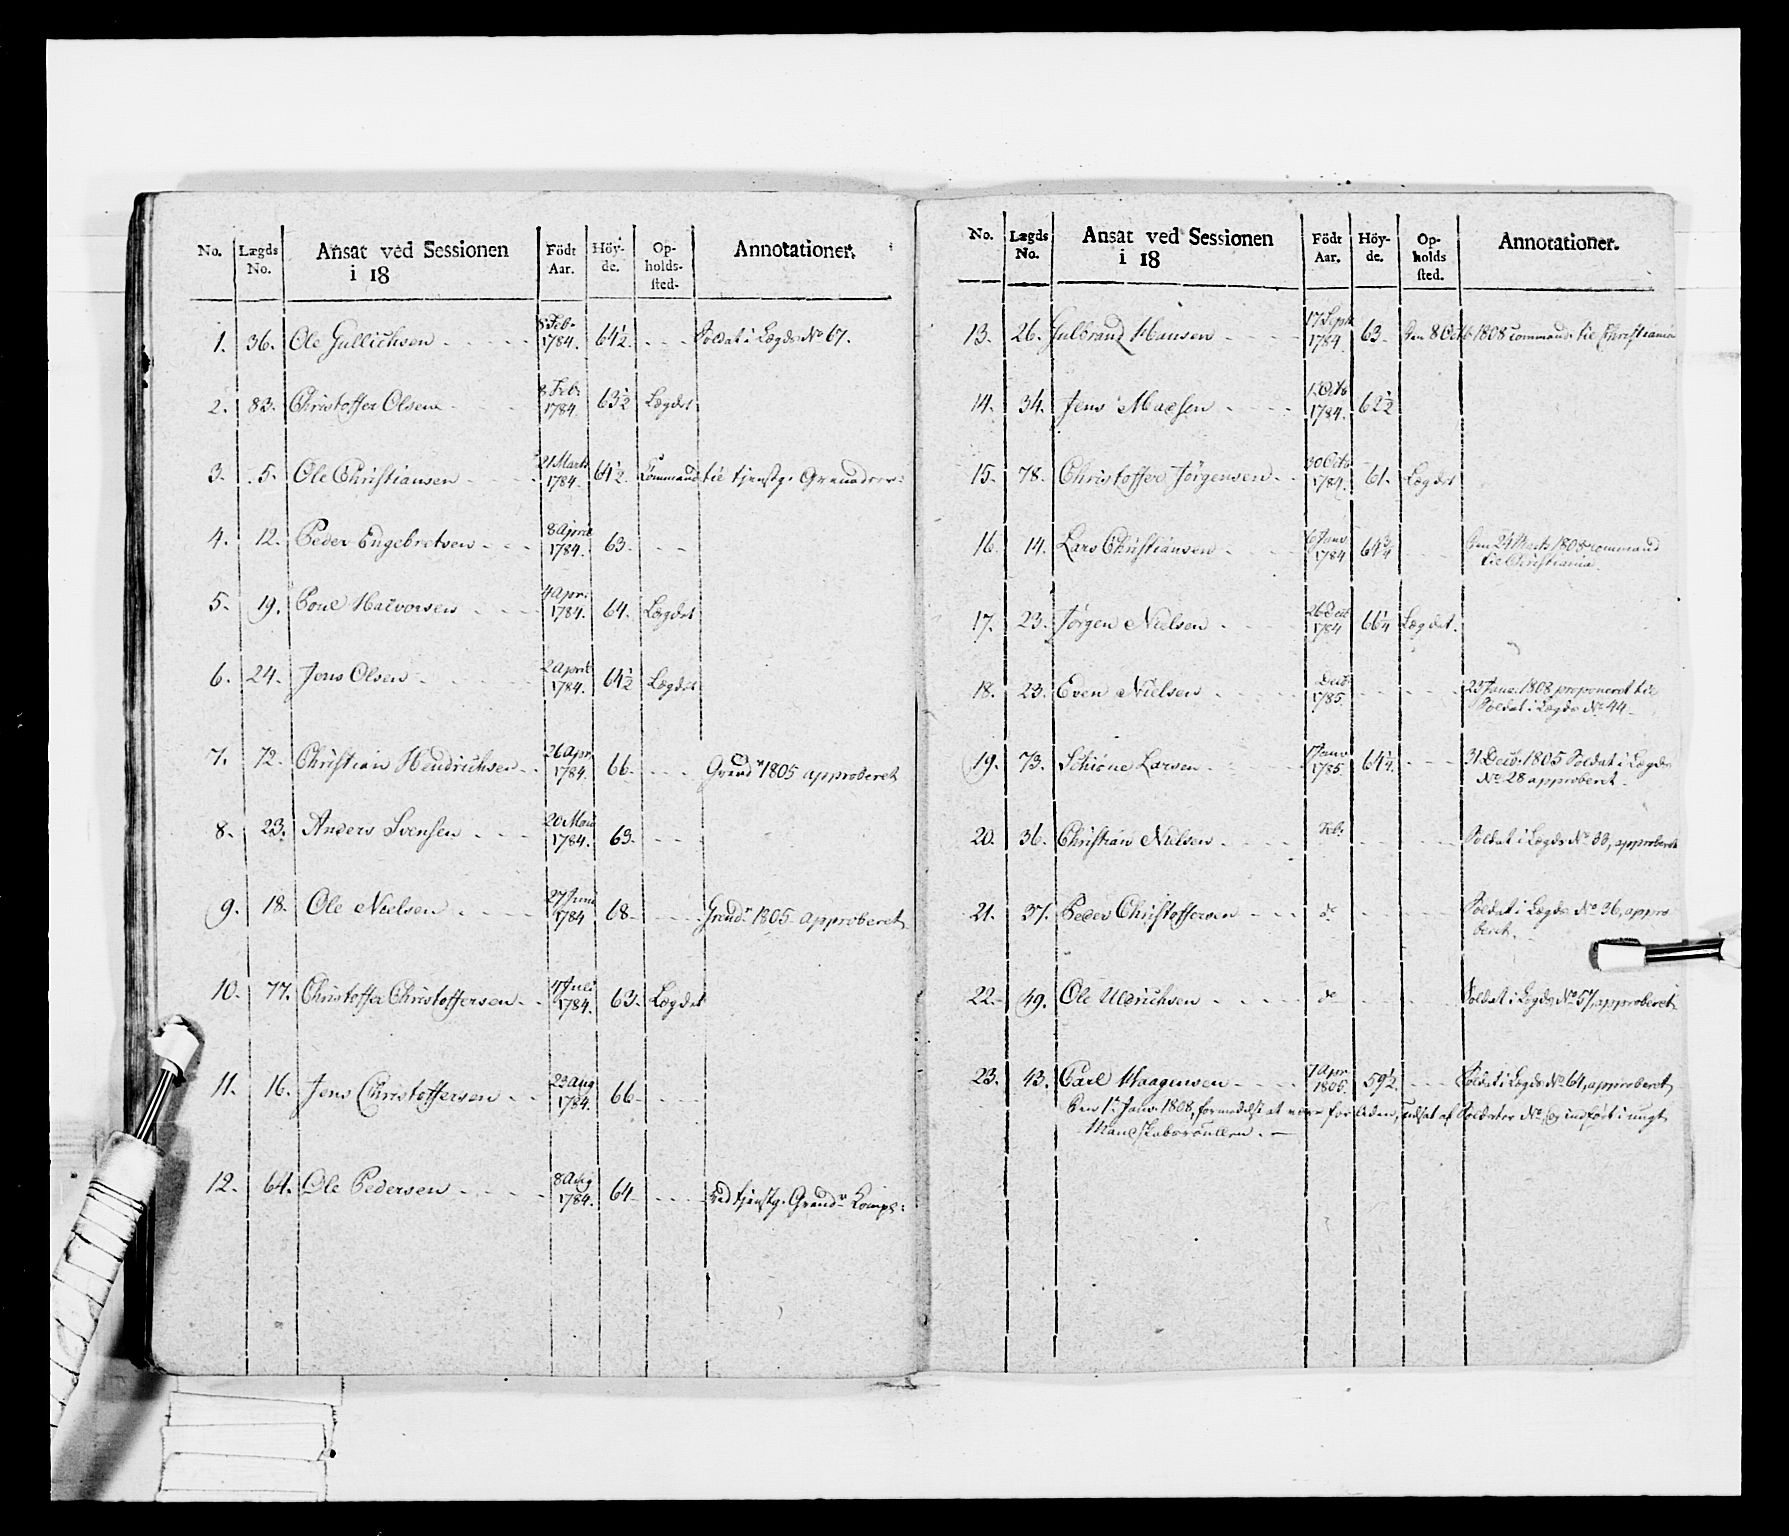 No. Lægds No. Ansat ved Sessionen i 18 Födt Aar. Höy-de. Op-holds-sted. Annotationer.
1. 36. Ole Gullichsen 8 Feb. 1784. 64½ Soldat i Lægds No 67.
2. 83. Christoffer Olsen 8 Feb. 1784. 63½ Lægdet
3. 5. Ole Christiansen 21 Marts 1784. 64½ Command til tjenstg. Grenaderer:
4. 12. Peder Engebretsen 8 April 1784. 63.
5. 19. Poul Halvorsen 4 Apr. 1784. 64. Lægdet
6. 24. Jens Olsen 2 April 1784. 64½ Lægdet
7. 72. Christian Hendrichsen 26 Apr. 1784. 66. Grend 1805 approberet
8. 23. Anders Svensen 20 Mai 1784. 63.
9. 18. Ole Nielsen 27 Juni 1784 68 Grend 1805 approberet
10. 77. Christoffer Christoffersen 4 Juli 1784. 63. Lægdet
11. 16. Jens Christoffersen 23 Aug 1784. 66
12. 64. Ole Pedersen 8 Aug 1784. 64 ved tjenstg. Grend Komp:
No. Lægds No. Ansat ved Sessionen i 18 Födt Aar. Höy-de. Op-holds sted. Annotationer.
13. 26. Gulbrand Hansen 17 Sept 1784. 63 Den 8 Octb 1808 command. til Christiania
14. 34. Jens Madsen 1 Octo 1784. 62½
15. 78. Christoffer Jørgensen 30 Octo 1784. 61. Lægdet
16. 14. Lars Christiansen 6 Janv 1784 64¾ Den 24 Marts 1808 command
til Christiania.
17. 23. Jørgen Nielsen 26 Dec 1784 66¼ Lægdet.
18. 23. Even Nielsen Decb 1785. 25 Janv. 1808 proponeret til
Soldat i Lægds No 44
19. 73. Schiøne Larsen Janv 1785. 64½. 31 Decb. 1805 Soldat i Lægds
No 28 approberet.
20. 36. Christian Nielsen Soldat i Lægds No 33, approberet
21. 37. Peder Christoffersen do Soldat i Lægds No 36, appro
beret.
22. 49. Ole Uldrichsen do Soldat i Lægds No 57, approberet
23. 43. Carl Haagensen Apr 59½ Soldat i Lægds No 64, approberet
Den 1. Janv. 1808, formedelst at være for liden, udsat af Soldater No, og indført i ungt
Mandskabsroullen.